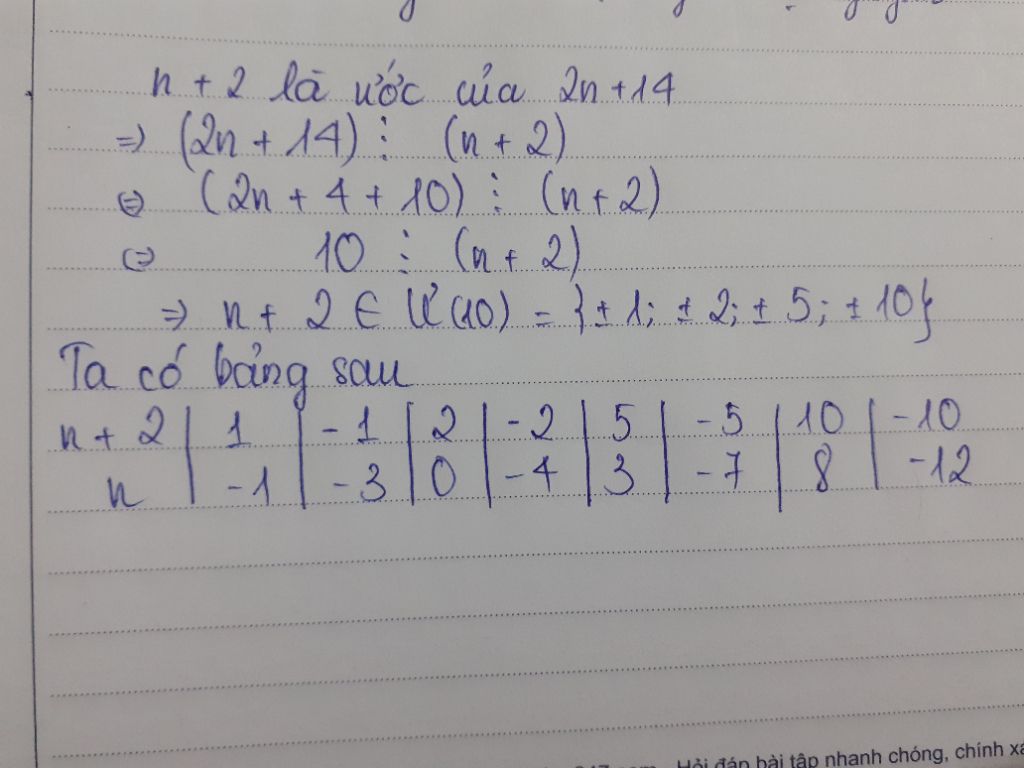 n + 2 là ước của 2n + 14
=> (2n + 14) ⋮ (n + 2)
<=> (2n + 4 + 10) ⋮ (n + 2)
<=> 10 ⋮ (n + 2)
=> n + 2 ∈ Ư(10) = {± 1; ± 2; ± 5; ± 10}
Ta có bảng sau
n + 2 | 1 | -1 | 2 | -2 | 5 | -5 | 10 | -10
n | -1 | -3 | 0 | -4 | 3 | -7 | 8 | -12
Hỏi đáp bài tập nhanh chóng, chính